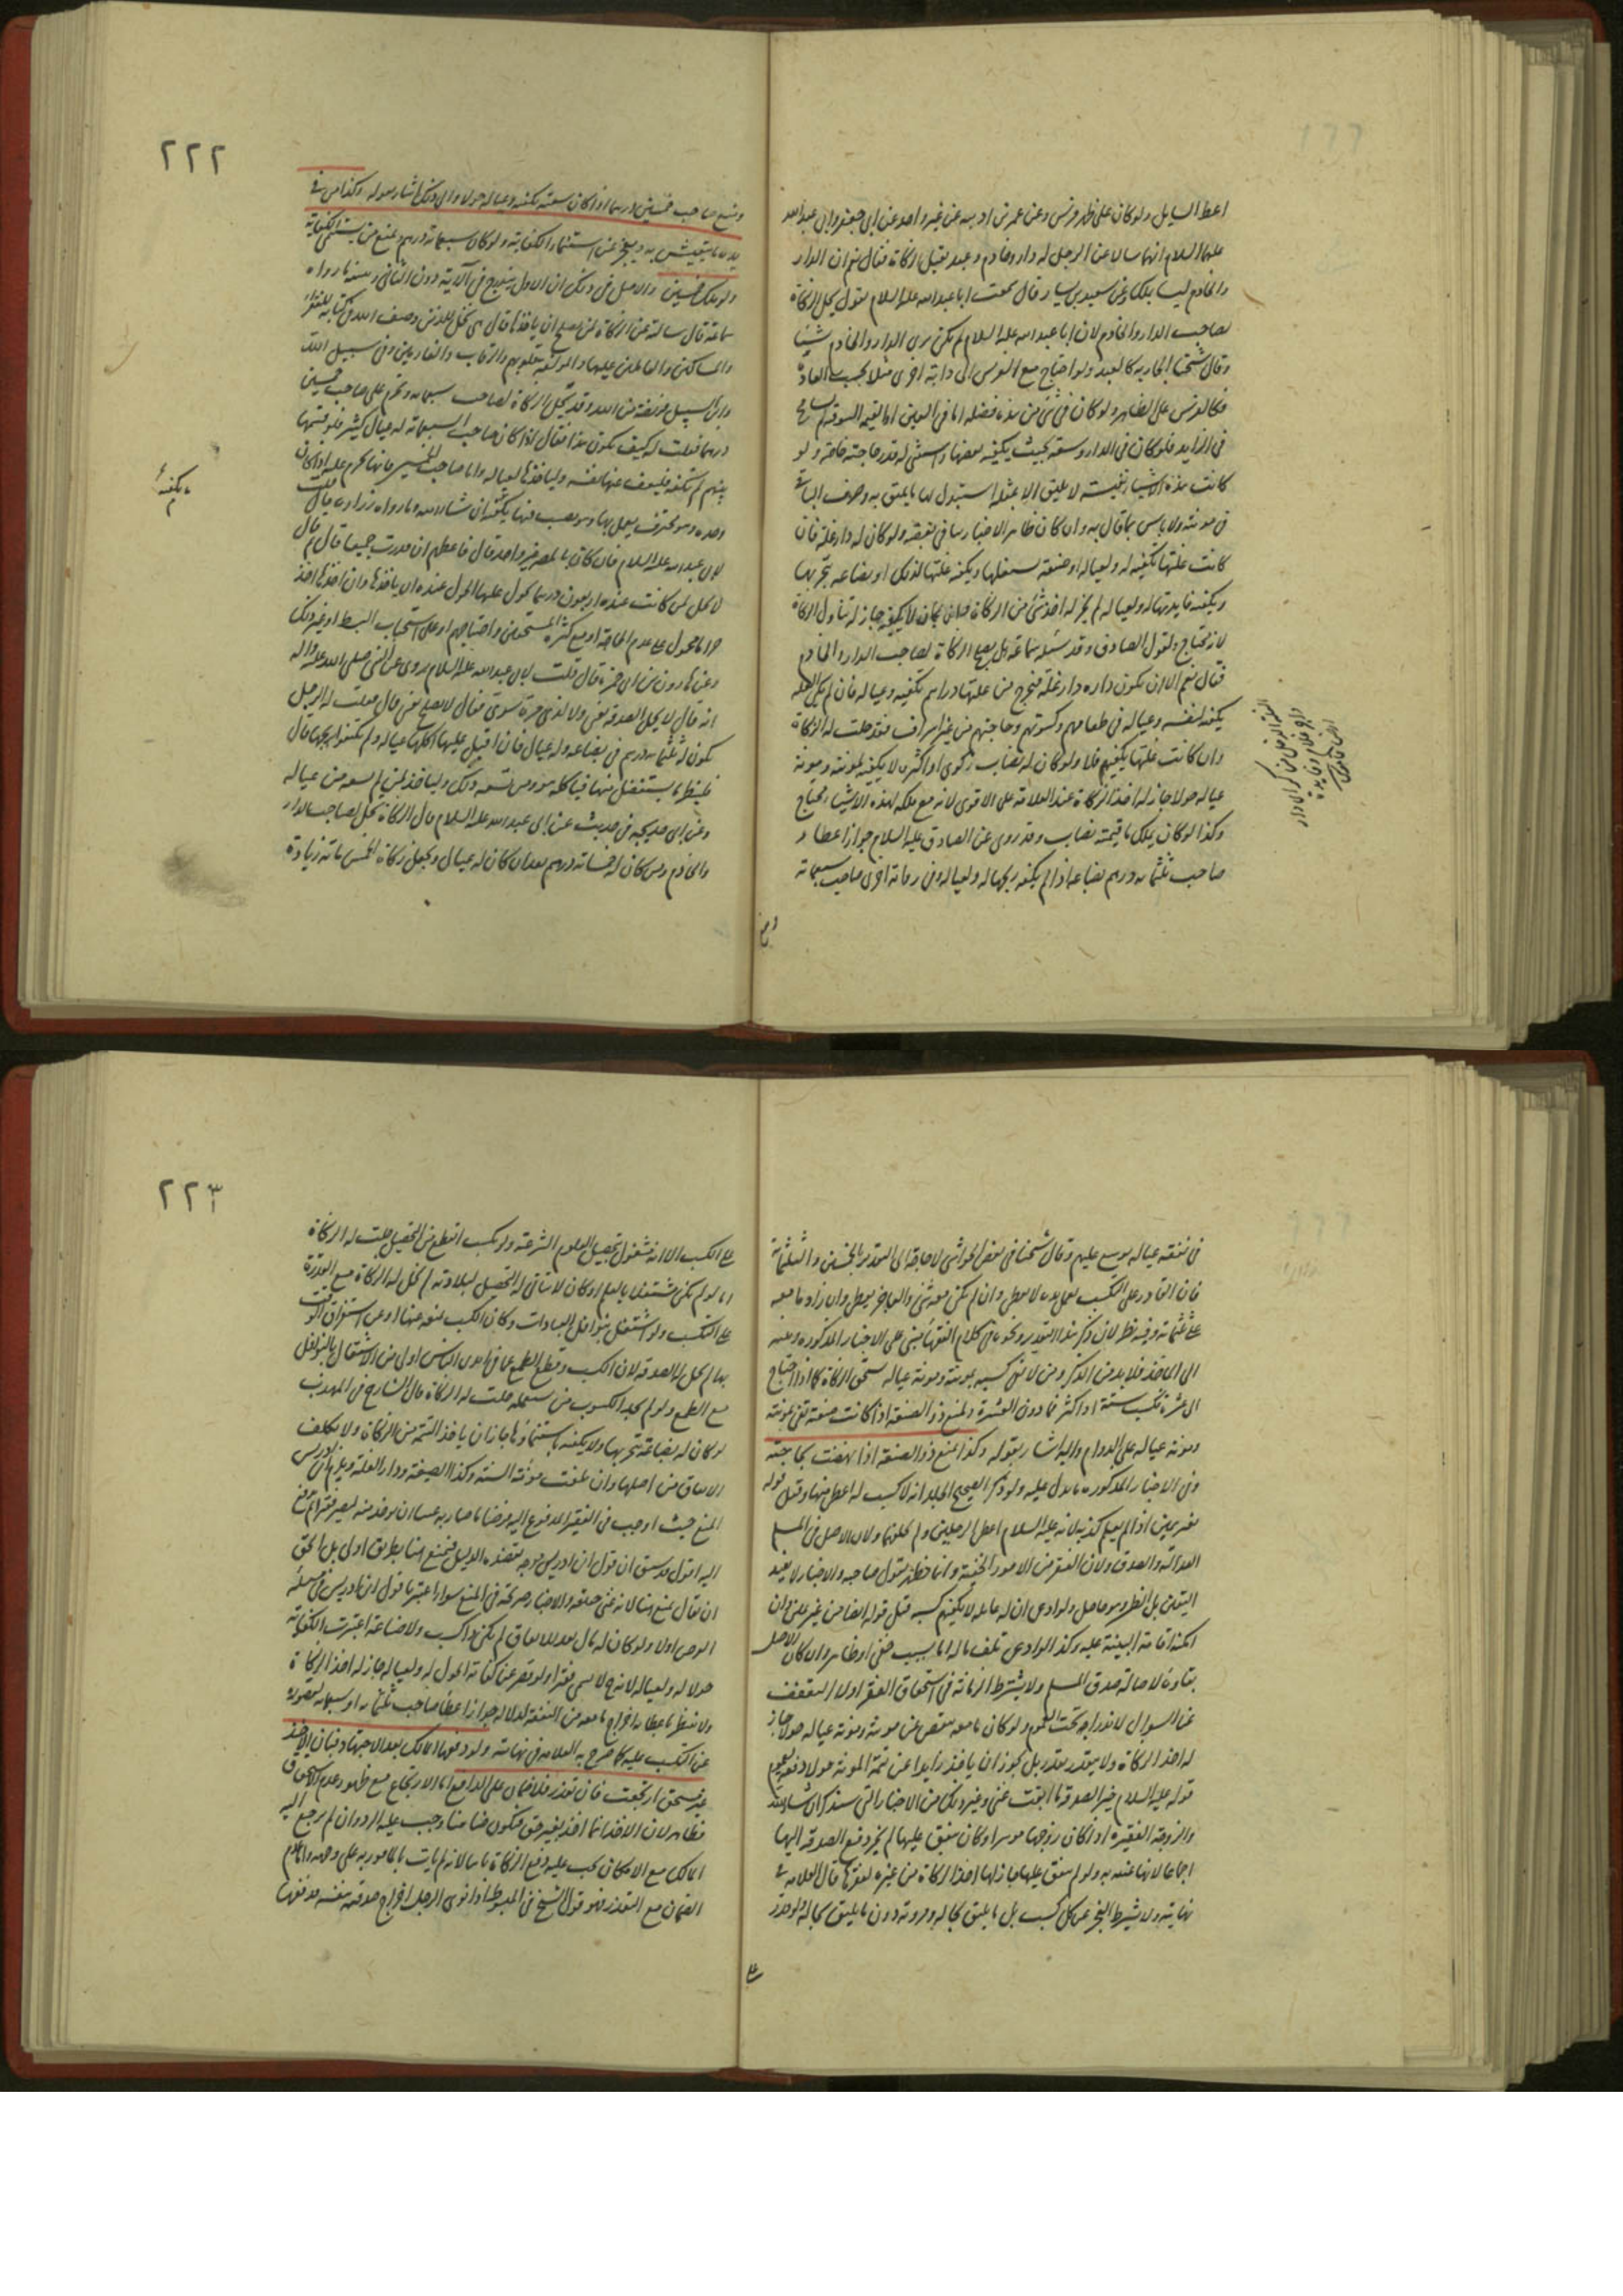 اعط السایل ولو کان علی ظهر فرس وعن عمر بن اذینه عن غیر واحد عن ابی جعفر وابی عبدالله
علیهما السلام انهما سالا عن الرجل له دار وخادم وعبد یقبل الزکاة فقال نعم ان الدار
والخادم لیسا بملک وعن سعید بن یسار قال سمعت ابا عبدالله علیه السلام یقول یحل الزکاة
لصاحب الدار والخادم لان ابا عبدالله علیه السلام لم یکن یری الدار والخادم شیئا
وقال شیخنا الجاریه کالعبد ولو احتاج مع الفرس الی دابة اخری مثلا بحسب العادة
فکالفرس علی الظاهر ولو کان فی شئ من هذه فضله اما فی العین او القیمه
فی الزاید فلو کان فی الدار وسعة بحیث یکفیه بعضها واستثنی له قدر حاجته خاصة ولو
کانت هذه الاشیاء نفیسة لا یلیق الا بمثله استبدل بها ما یلیق به وصرف الباقی
فی مونته ولا باس بما قال به وان کان ظاهر الاخبار ینافی بعضه ولو کان له دار غلة فان
کانت غلتها تکفیه له ولعیاله او ضیعة یستغلها ویکفیه غلتها لذلک او بضاعة یتجر بها
ویکفیه فایدتها له ولعیاله لم یجز له اخذ شئ من الزکاة فان کان لا یکفیه جاز له تناول الزکاة
لانه محتاج ولقول الصادق وقد سئله سماعة هل یصلح الزکاة لصاحب الدار والخادم
فقال نعم الا ان یکون داره دار غلة فیخرج من غلتها دراهم تکفیه وعیاله فان لم یکن الغله
یکفیه لنفسه وعیاله فی طعامهم وکسوتهم وحاجتهم من غیر اسراف فقد حلت له الزکاة
وان کانت غلتها یکفیهم فلا ولو کان له نصاب زکوی او اکثر لا یکفیه لمونته ومونة
عیاله حولا جاز له اخذ الزکاة عند العلامة علی الاقوی لانه مع ملکه لهذه الاشیاء محتاج
وکذا لو کان یملک ما قیمته نصاب وقد روی عن الصادق علیه السلام جواز اعطاء
صاحب ثلثمائة درهم بضاعة اذا لم یکفه ربحها له ولعیاله وفی روایة اخری صاحب سبعمائة
٢٢٢
ومنع صاحب خمسین درهما اذا کان سعته تکفیه وعیاله حولا والی ذلک اشار بقوله وکذا من فی
یده ما یتعیش به ویعجز عن استنماء الکفایة ولو کان سبعمائة درهم ویمنع من یستنمی الکفایة
ولو ملک خمسین والاصل فی ذلک ان الاول یندرج فی الآیة دون الثانی ویسنه ما رواه
سماعة قال سالته عن الزکاة لمن یصلح ان یاخذها قال هی تحل للذین وصف الله فی کتابه للفقراء
والمساکین والعاملین علیها والمولفة قلوبهم والرقاب والغارمین وفی سبیل الله
وابن السبیل فریضة من الله وقد تحل الزکاة لصاحب سبعمائة وتحرم علی صاحب خمسین
درهما فقلت له کیف یکون هذا فقال اذا کان صاحب السبعمائة له عیال کثیر فلو قسمها
بینهم لم تکفه فلیعف عنها نفسه ولیاخذها لعیاله واما صاحب الخمسین فانها تحرم علیه اذا کان
وحده وهو محترف یعمل بها وهو یصیب فیها ما یکفیه ان شاء الله وما رواه زراره قال قلت
لابی عبدالله علیه السلام فان کان بالمصر غیر واحد قال فاعطهم ان قدرت جمیعا قال ثم قال
لا یحل لمن کانت عنده اربعون درهما یحول علیها الحول عنده ان یاخذها وان اخذها اخذ
حراما محمول علی عدم الحاجة او مع کثرة المستحقین واحتیاجهم او علی استحباب البسط او غیر ذلک
وعن هارون بن ابی حمزة قال قلت لابی عبدالله علیه السلام یروی عن النبی صلی الله علیه واله
انه قال لا یحل الصدقة لغنی ولا لذی مرة سوی فقال لا یصلح لغنی قال فقلت له الرجل
یکون له ثلثمائة درهم فی بضاعة وله عیال فان اقبل علیها اکلها عیاله ولم یکتفوا بربحها قال
فلینظر ما یستفضل منها فیاکله هو ومن یسعه ذلک ولیاخذ لمن لم یسعه من عیاله
وعن ابی خدیجه فی حدیث عن ابی عبدالله علیه السلام قال الزکاة تحل لصاحب الدار
والخادم ومن کان له خمسمائة درهم بعد ان کان له عیال ویجعل زکاة الخمس مائة زیادة
ما یکفیه
فی نفقة عیاله یوسع علیهم وقال شیخنا فی بعض الحواشی لا حاجة الی التقدیر بالخمسین والثلثمائة
فان القادر علی التکسب بعمل یده لا یعطی وان لم یکن معه شئ والعاجز یعطی وان زاد ما معه
علی ثلثمائة وفیه نظر لان ذکر هذا التقدیر ونحوه فی کلام الفقهاء مبنی علی الاخبار المذکورة وغیره
الی المأخذ فلا بد من الذکر ومن لا یفی کسبه بمونته ومونة عیاله یستحق الزکاة کما اذا احتاج
الی عشرة یکسب ستة او اکثر فما دون العشرة ویمنع ذو الصنعة اذا کانت صنعته تفی بمونته
ومونة عیاله علی الدوام والیه اشار بقوله وکذا یمنع ذو الصنعة اذا نهضت بحاجته
وفی الاخبار المذکورة ما یدل علیه ولو ذکر الصحیح الجلد انه لا کسب له اعطی منها وقبل قوله
بغیر یمین اذا لم یعلم کذبه لانه علیه السلام اعطی الرجلین ولم یحلفهما ولان الاصل فی المسلم
العدالة والصدق ولان الفقر من الامور الخفیة وانما یظهر بقول صاحبه والاخبار لا یفید
الیقین بل الظن وهو حاصل ولو ادعی ان له عایلة لا یکفیهم کسبه قبل قوله ایضا من غیر یمین وان
امکنه اقامة البینة علیه وکذا لو ادعی تلف ماله اما بسبب خفی او ظاهر وان کان الاصل
بقاؤه لاصالة صدق المسلم ولا یشترط الزمانة فی استحقاق الفقراء ولا التعفف
عن السوال لاندراجه تحت العموم ولو کان ما معه ینقص عن مونته ومونة عیاله حولا جاز
له اخذ الزکاة ولا یتقدر بقدر بل یجوز ان یاخذ زایدا عن تتمة المونة حولا دفعة لعموم
قوله علیه السلام خیر الصدقة ما ابقت غنی وغیر ذلک من الاخبار التی سنذکر ان شاء الله
والزوجة الفقیرة اذا کان زوجها موسرا وکان ینفق علیها لم یجز دفع الصدقة الیها
اجماعا لانها غنیة به ولو لم ینفق علیها جاز لها اخذ الزکاة من غیره لفقرها قال العلامة فی
نهایته ولا یشترط العجز عن کل کسب بل ما یلیق بحاله ومروته دون ما لا یلیق بحاله ولو قدر
علی
٢٢٣
علی الکسب الا انه مشغول بتحصیل العلوم الشرعیة ولو کسب انقطع عن التحصیل حلت له الزکاة
اما لو لم یکن مشتغلا بالعلم او کان لا یتاتی له التحصیل لبلادته لم تحل له الزکاة مع القدرة
علی التکسب ولو اشتغل بنوافل العبادات وکان الکسب یمنعه عنها او عن استغراق الوقت
بها لم یحل له الصدقة لان الکسب وقطع الطمع عما فی ایدی الناس اولی من الاشتغال بالنوافل
مع الطمع ولو لم یجد الکسوب من یستعمله حلت له الزکاة قال الشارح فی المهذب
لو کان له بضاعة یتجر بها ولا یکفیه باستنمائها جاز ان یاخذ التتمة من الزکاة ولا یکلف
الانفاق من اصلها وان بلغت مونة السنة وکذا الضیعة ودار الغلة ویلزم ابن ادریس
المنع حیث اوجب فی الفقیر المدفوع الیه
الیه اقول قد سبق ان قول ابن ادریس
ان یقال یمنع هنا لانه غنی حقیقة والاخبار صریحة فی المنع سواء اعتبرنا قول ابن ادریس فی مسئلة
القرض اولا ولو کان له مال یعده للانفاق لم یکن ذا کسب ولا صناعة اعتبرت الکفایة
حولا له ولعیاله لانه لا یسمی فقیرا ولو قصر عن کفایة الحول له ولعیاله جاز له اخذ الزکاة
ولا ینتظر باعطائه اخراج ما معه من النفقة لدلالة جواز اعطاء صاحب ثلثمائة او سبعمائة لقصوره
عن التکسب علیه کما صرح به العلامة فی نهایته ولو دفعها المالک بعد الاجتهاد فبان الاخذ
غیر مستحق ارتجعت فان تعذر فلا ضمان علی الدافع اما الارتجاع مع ظهور عدم الاستحقاق
فظاهر لان الاخذ انما اخذ بغیر حق فیکون ضامنا وجب علیه الرد وان لم یرجع الیه
المالک مع الامکان یجب علیه دفع الزکاة ثانیا لانه لم یات بالمامور به علی وجهه واما عدم
الضمان مع التعذر فهو قول الشیخ فی المبسوط اذا نوی الرجل اخراج صدقة بنفسه فدفعها